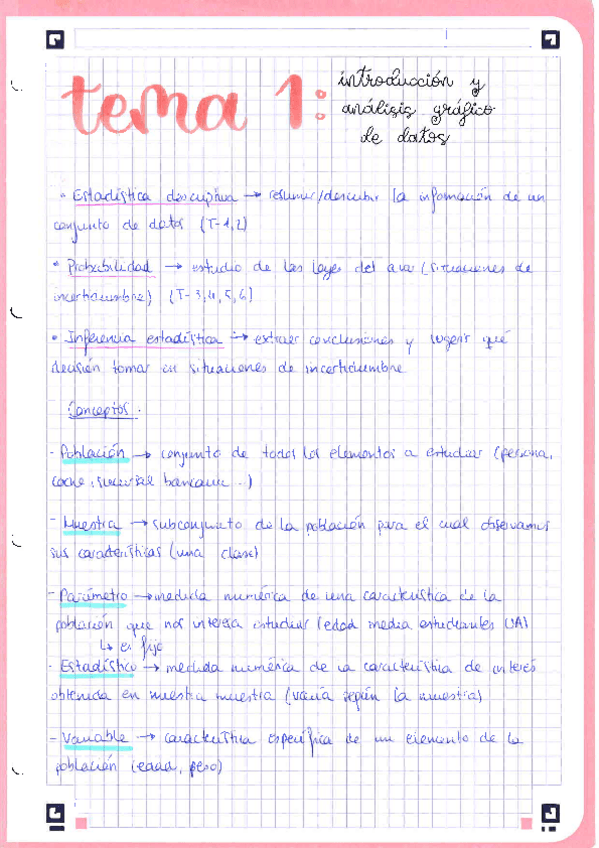 tema 1: introducción y
análisis gráfico
de datos
• Estadística descriptiva → resumir/describir la información de un
conjunto de datos (T-1,2)
• Probabilidad → estudio de las leyes del azar (situaciones de
incertidumbre) (T-3,4,5,6)
• Inferencia estadística → extraer conclusiones y sugerir qué
decisión tomar en situaciones de incertidumbre
Conceptos.
- Población → conjunto de todos los elementos a estudiar (persona,
coche, sucursal bancaria...)
- Muestra → subconjunto de la población para el cual observamos
sus características (una clase)
- Parámetro → medida numérica de una característica de la
población que nos interesa estudiar (edad media estudiantes UA)
↳ es fijo
- Estadístico → medida numérica de la característica de interés
obtenida en nuestra muestra (varía según la muestra)
- Variable → característica específica de un elemento de la
población (edad, peso)